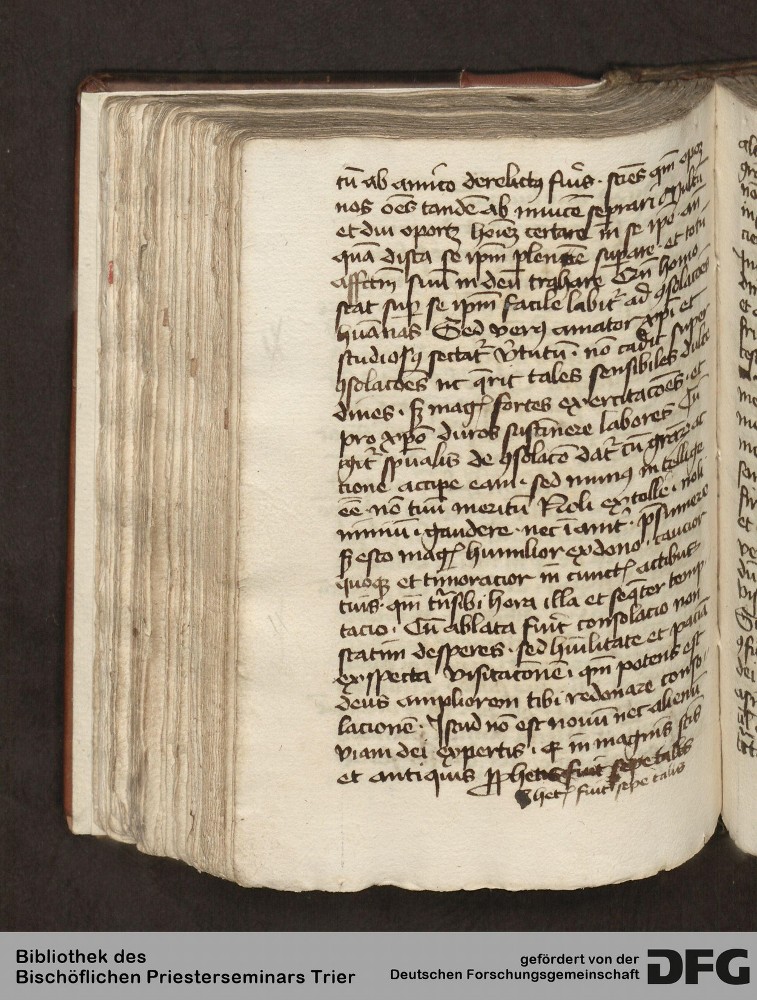 tū ab amico derelictꝰ fuīs · sciēs qm̄ opoꝫ
nos oēs tandē ab inuicē seprari
et diu oportꝫ hoīeꝫ certare in se ipō an
quā disca se ipm̄ plenīe supare et totū
affctm̄ suū in deū trahare Cū homo
stat sup se ipm̄ facile labitᷣ ad ꝯsolacōes
hūanas Sed verꝰ amator xp̄i et
studiosꝰ sectatᷣ v̄tutū · nō cadit super
ꝯsolacōes nc̄ q̄rit tales sensibiles dulce
dines · sꝫ magꝭ fortes exercitacōes · et
pro xp̄o duros sustinere labores Cū
igitᷣ sp̄ualis de ꝯsolaco datᷣ cū grāꝝ ac
tione accipe eam · sed munꝰ intellige
eē · nō tuū meritū Noli extolle · noli
nimiū · gaudere · nec īanitᷣ · p̄sumere
sꝫ esto magꝭ humilior ex dono · caucior
quoqꝫ et timoracior in cunctꝭ actibus
tuis · qm̄ trn̄sibi hora illa et seqᷓter temp
tacio · Cū ablata fuīt consolacio non
statim desperes · sed hūilitate et pacīā
exspecta visitatōnē · qm̄ potens est
deus ampliorem tibi redonare conso
lacionē · Istud nō est nouū nec alienū
viam dei expertis · qꝛ in magnis sc̄is
et antiquis ꝓphetis fuit sepe talis
hetꝭ fuit sepe talis
Bibliothek des
Bischöflichen Priesterseminars Trier
gefördert von der
Deutschen Forschungsgemeinschaft
DFG